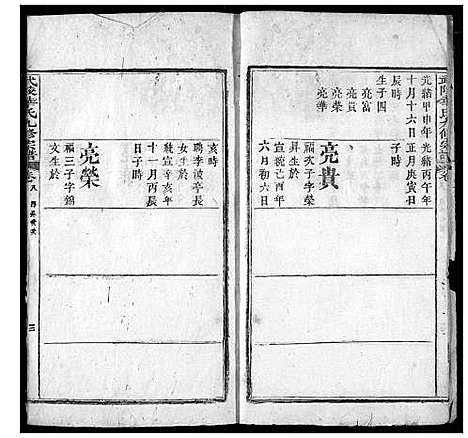 光緒甲申年
十月十六日
辰時
生子四
亮富
亮貴
亮華
光緒丙午年
正月庚寅日
子時
亮貴
福次子字榮
昇生於
宣統己酉年
六月初六日
亥時
聘李浚亭長
女生於
宣辛亥年
十一月丙辰
日子時
亮榮
福三子字錦
文生於
氏九修宗譜
卷八
三